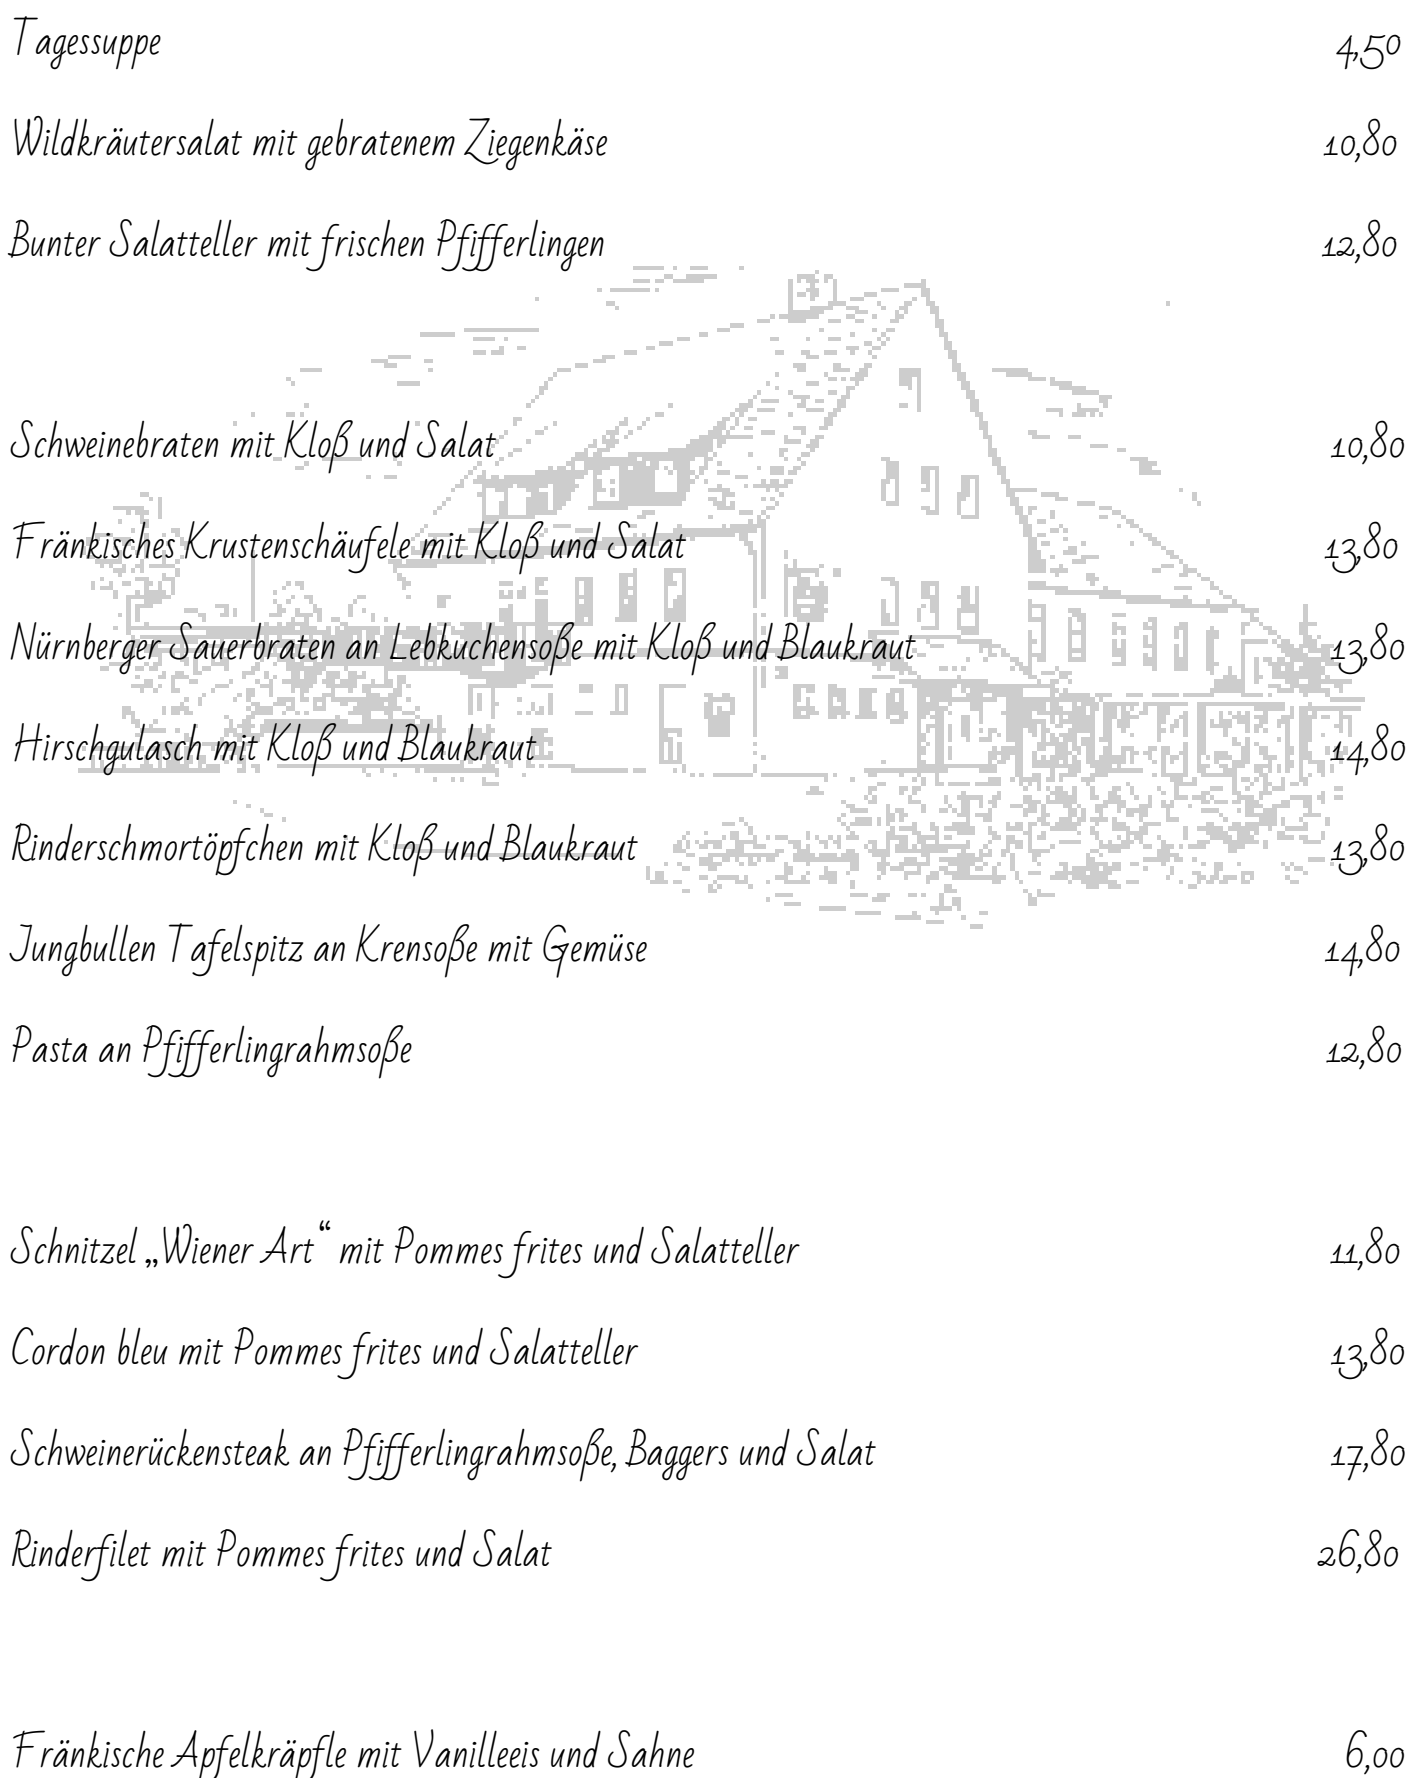 Tagessuppe 4,50
Wildkräutersalat mit gebratenem Ziegenkäse 10,80
Bunter Salatteller mit frischen Pfifferlingen 12,80
Schweinebraten mit Kloß und Salat 10,80
Fränkisches Krustenschäufele mit Kloß und Salat 13,80
Nürnberger Sauerbraten an Lebkuchensoße mit Kloß und Blaukraut 13,80
Hirschgulasch mit Kloß und Blaukraut 14,80
Rinderschmortöpfchen mit Kloß und Blaukraut 13,80
Jungbullen Tafelspitz an Krensoße mit Gemüse 14,80
Pasta an Pfifferlingrahmsoße 12,80
Schnitzel „Wiener Art“ mit Pommes frites und Salatteller 11,80
Cordon bleu mit Pommes frites und Salatteller 13,80
Schweinerückensteak an Pfifferlingrahmsoße, Baggers und Salat 17,80
Rinderfilet mit Pommes frites und Salat 26,80
Fränkische Apfelkräpfle mit Vanilleeis und Sahne 6,00